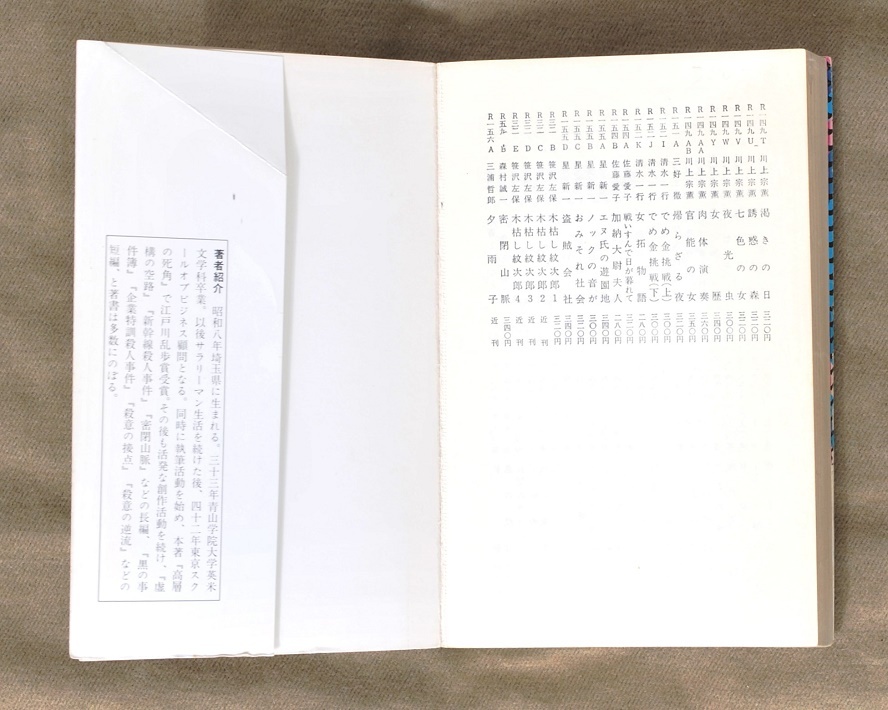 R一四九T 川上宗薫 渇きの日 三二〇円
R一四九U 川上宗薫 誘惑の森 三二〇円
R一四九V 川上宗薫 七色の女 三四〇円
R一四九W 川上宗薫 夜光虫 三〇〇円
R一四九Y 川上宗薫 女歴 三四〇円
R一四九AA 川上宗薫 肉体演奏 三六〇円
R一四九AB 川上宗薫 官能の女 三五〇円
R一五一A 三好徹 帰らざる夜 三二〇円
R一五二I 清水一行 でめ金挑戦(上) 三〇〇円
R一五二J 清水一行 でめ金挑戦(下) 三〇〇円
R一五二K 清水一行 女拓物語 二八〇円
R一五四A 佐藤愛子 戦いすんで日が暮れて 三二〇円
R一五四B 佐藤愛子 加納大尉夫人 二八〇円
R一五五A 星新一 エヌ氏の遊園地 三二〇円
R一五五B 星新一 ノックの音が 三〇〇円
R一五五C 星新一 おみそれ社会 三二〇円
R一五五D 星新一 盗賊会社 三四〇円
笹沢左保 木枯し紋次郎1 三二〇円
笹沢左保 木枯し紋次郎2 近刊
笹沢左保 木枯し紋次郎3 近刊
笹沢左保 木枯し紋次郎4 近刊
森村誠一 密閉山脈 三四〇円
R一五六A 三浦哲郎 夕雨子 近刊
著者紹介 昭和八年埼玉県に生まれる。三十三年青山学院大学英米
文学科卒業。以後サラリーマン生活を続けた後、四十二年東京スク
ールオブビジネス顧問となる。同時に執筆活動を始め、本著『高層
の死角』で江戸川乱歩賞受賞。その後も活発な創作活動を続け、『虚
構の空路』『新幹線殺人事件』『密閉山脈』などの長編、『黒の事
件簿』『企業特訓殺人事件』『殺意の接点』『殺意の逆流』などの
短編、と著書は多数にのぼる。